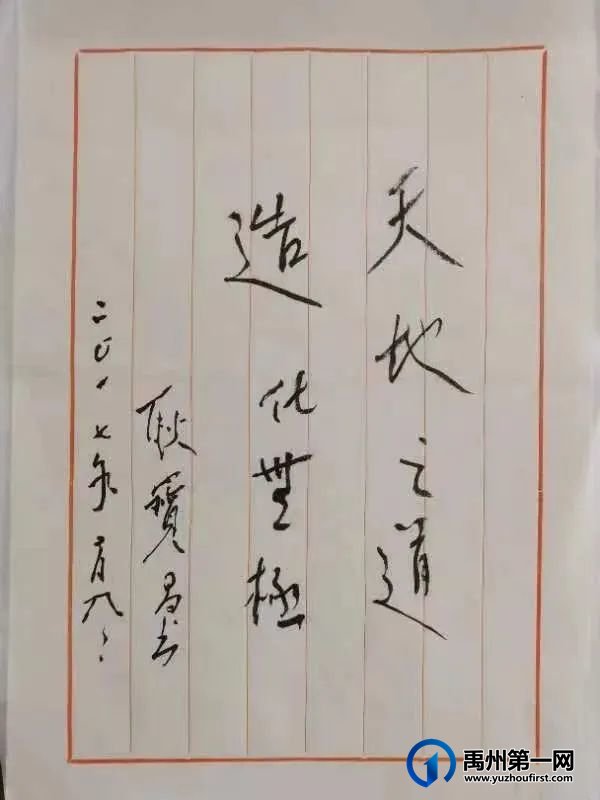 天地之道
造化無極
耿寶昌書
二〇一七年二月九日
禹州第一网
www.yuzhoufirst.com